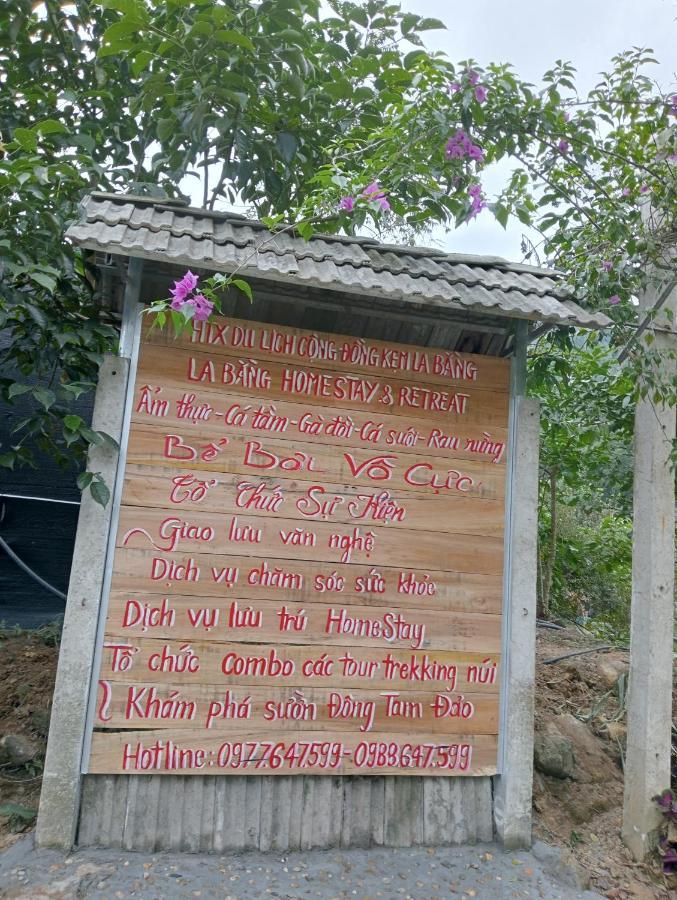 HTX DU LỊCH CỘNG ĐỒNG KẸM LA BẰNG
LA BẰNG HOMESTAY & RETREAT
Ẩm thực - Cá tầm - Gà đồi - Cá suối - Rau rừng
Bể Bơi Vô Cực
Tổ Chức Sự Kiện
Giao lưu văn nghệ
Dịch vụ chăm sóc sức khỏe
Dịch vụ lưu trú HomeStay
Tổ chức combo các tour trekking núi
Khám phá sườn Đông Tam Đảo
Hotline: 0977.647.599 - 0988.647.599